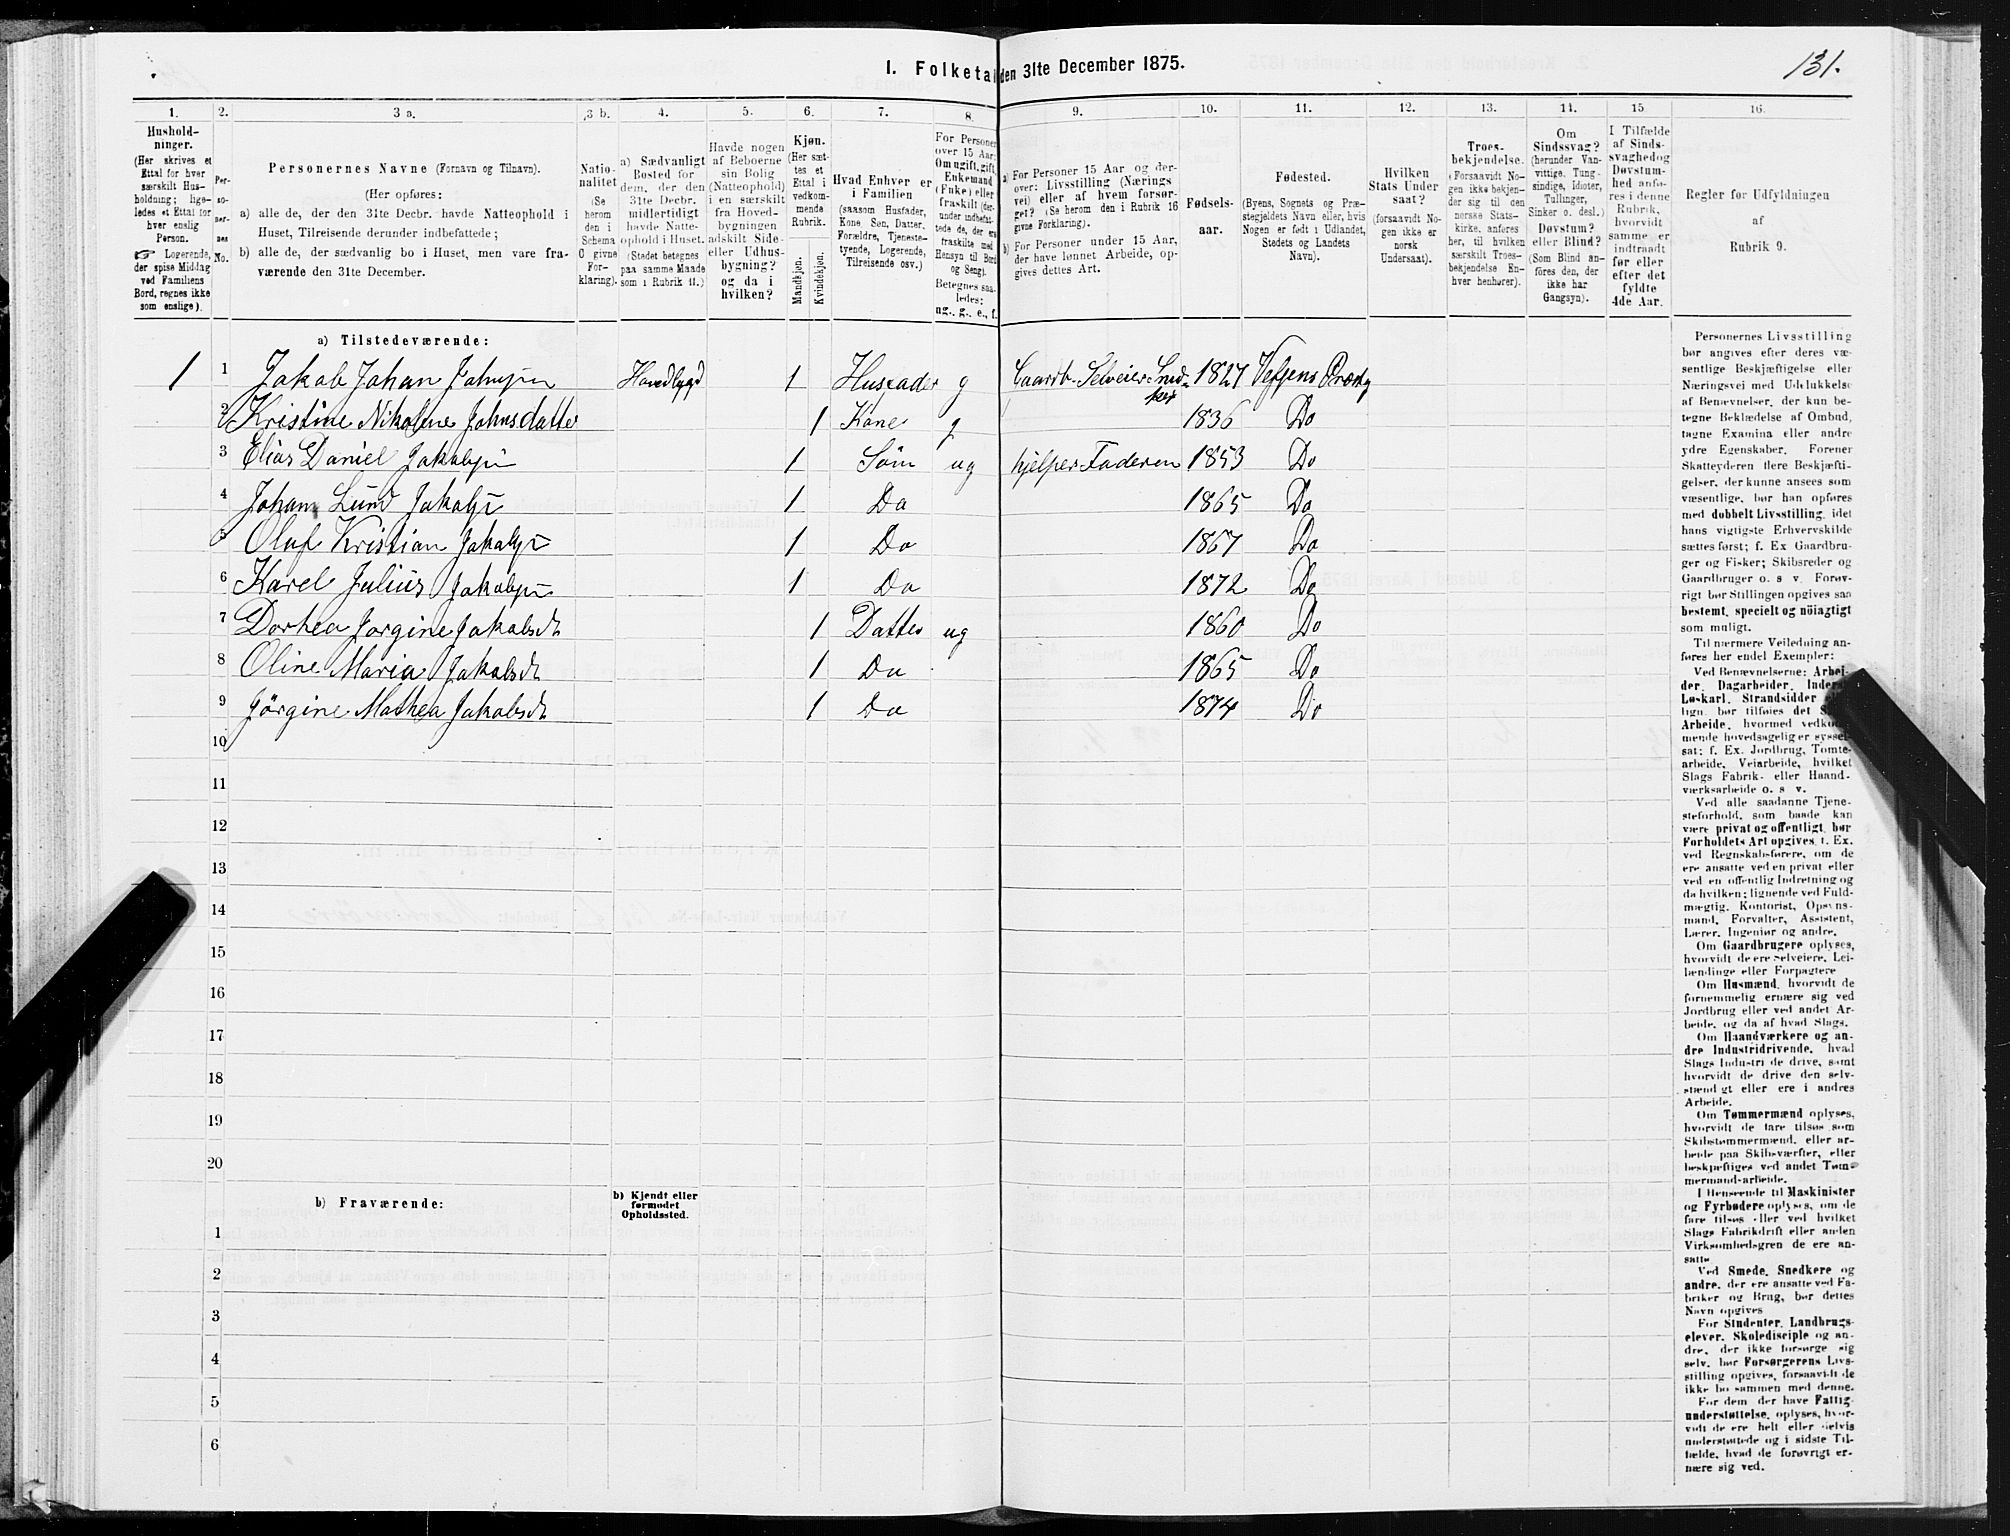 131.
I. Folketæ
den 31te December 1875.
1. 2. 3 a. 3 b. 4. 5. 6. 7. 8. 9. 10. 11. 12. 13. 14. 15 16.
Hushold-
ninger.
(Her skrives et
Ettal for hver
særskilt Hus-
holdning; lige-
ledes et Ettal for
hver enslig
Person.
☞ Logerende,
der spise Middag
ved Familiens
Bord, regnes ikke
som enslige).
Per-
so-
ner-
nes
No.
Personernes Navne (Fornavn og Tilnavn).
(Her opføres:
a) alle de, der den 31te Decbr. havde Natteophold i
Huset, Tilreisende derunder indbefattede;
b) alle de, der sædvanlig bo i Huset, men vare fra-
værende den 31te December.
Natio-
nalitet
(Se
herom
den i
Schema
C givne
For-
klaring).
a) Sædvanligt
Bosted for
dem, der den
31te Decbr.
midlertidigt
havde Natte-
ophold i Huset.
(Stedet betegnes
paa samme Maade
som i Rubrik 11.)
Havde nogen
af Beboerne
sin Bolig
(Natteophold)
i en særskilt
fra Hoved-
bygningen
adskilt Side-
eller Udhus-
bygning?
og da i
hvilken?
Kjøn.
(Her sæt-
tes et
Ettal i
vedkom-
mende
Rubrik.
Mandkjøn.
Kvindekjøn.
Hvad Enhver er
i Familien
(saasom Husfader,
Kone, Søn, Datter,
Forældre, Tjeneste-
tyende, Logerende,
Tilreisende osv.)
For Personer
over 15 Aar:
Om ugift, gift,
Enkemand
(Enke) eller
fraskilt (der-
under indbefat-
tede de, der ere
fraskilte med
Hensyn til Bord
og Seng).
Betegnes saa-
ledes:
ug., g., e., f.
a) For Personer 15 Aar og der-
over: Livsstilling (Nærings
vei) eller af hvem forsør-
get? (Se herom den i Rubrik 16
givne Forklaring).
b) For Personer under 15 Aar,
der have lønnet Arbeide, op-
gives dettes Art.
Fødsels-
aar.
Fødested.
(Byens, Sognets og Præ-
stegjeldets Navn eller, hvis
Nogen er født i Udlandet,
Stedets og Landets
Navn).
Hvilken
Stats Under
saat?
(forsaavidt No-
gen ikke er
norsk
Undersaat).
Troes-
bekjendelse.
(Forsaavidt No-
gen ikke bekjen-
der sig til den
norske Stats-
kirke, anføres
her, til hvilken
særskilt Troes-
bekjendelse En-
hver henhører).
Om
Sindssvag?
(herunder Van-
vittige, Tung-
sindige, Idioter,
Tullinger,
Sinker o. desl.)
Døvstum?
eller Blind?
(Som Blind an-
føres den, der
ikke har
Gangsyn).
I Tilfælde
af Sinds-
svaghed og
Døvstum-
hed anfø-
res i denne
Rubrik,
hvorvidt
samme er
indtraadt
før eller
efter det
fyldte
4de Aar.
Regler for Udfyldningen
af
Rubrik 9.
a) Tilstedeværende:
1 1 Jakob Johan Johnsen Hovedbygd 1 Husfader g Gaardb. Selveier Sned-ker 1827 Vefsens Præstg
2 Kristine Nikoline Johnsdatter 1 Kone g 1836 Do
3 Elias Daniel Jakobsen 1 Søn ug hjelper Faderen 1853 Do
4 Johan Lund Jakobsen 1 Do 1865 Do
5 Oluf Kristian Jakobsen 1 Do 1867 Do
6 Karel Julius Jakobsen 1 Do 1872 Do
7 Dorhea Jørgine Jakobsdt 1 Datter ug 1860 Do
8 Oline Maria Jakobsdt 1 Do 1865 Do
9 Jörgine Mathea Jakobsdt 1 Do 1874 Do
10
11
12
13
14
15
16
17
18
19
20
b) Fraværende:
b) Kjendt eller
formodet
Opholdssted.
1
2
3
4
5
6
Personernes Livsstilling
bør angives efter deres væ-
sentlige Beskjæftigelse eller
Næringsvei med Udelukkelse
af Benævnelser, der kun be-
tegne Beklædelse af Ombud,
tagne Examina eller andre
ydre Egenskaber. Forener
Skatteyderen flere Beskjæfti-
gelser, der kunne ansees som
væsentlige, bør han opføres
med dobbelt Livsstilling, idet
hans vigtigste Erhvervskilde
sættes først; f. Ex Gaardbru-
ger og Fisker; Skibsreder og
Gaardbruger o. s v. Forøv-
rigt bør Stillingen opgives saa
bestemt, specielt og nøiagtigt
som muligt.
Til nærmere Veiledning an-
føres her endel Exempler:
Ved Benævnelserne: Arbei-
der, Dagarbeider, Inderst
Løskarl, Strandsidder
lign. bør tilføies det
Arbeide, hvormed vedkom-
mende hovedsagelig er syssel-
sat; f. Ex. Jordbrug, Tomte-
arbeide, Veiarbeide, hvilket
Slags Fabrik- eller Haand-
værksarbeide o. s v.
Ved alle saadanne Tjene-
steforhold, som baade kan
være privat og offentligt, bør
Forholdets Art opgives, f. Ex.
ved Regnskabsførere, om de
ere ansatte ved en privat eller
ved en offentlig Indretning og
da hvilken; lignende ved Fuld-
mægtig, Kontorist, Opsyns-
mand, Forvalter, Assistent,
Lærer, Ingeniør og andre.
Om Gaardbrugere oplyses,
hvorvidt de ere Selveiere, Lei-
lændinge eller Forpagtere
Om Husmænd, hvorvidt de
fornemmelig ernære sig ved
Jordbrug eller ved andet Ar-
beide, og da af hvad Slags.
Om Haandværkere og an-
dre Industridrivende, hvad
Slags Industri de drive, samt
hvorvidt de drive den selv-
stændigt eller ere i andres
Arbeide.
Om Tømmermænd oplyses,
hvorvidt de fare tilsøs som
Skibstømmermænd, eller ar-
beide paa Skibsværfter, eller
beskjæftiges ved andet Tøm-
mermand-arbeide.
I Henseende til Maskinister
og Fyrbødere oplyses, om de
fare tilsøs eller ved hvilket
Slags Fabrikdrift eller anden
Virksomhedsgren de ere an-
satte
Ved Smede, Snedkere og
andre, der ere ansatte ved Fa-
briker og Brug, bør dettes
Navn opgives
For Studenter, Landbrugs-
elever, Skoledisciple og an-
dre, der ikke forsørge sig
selv, bør Forsørgerens Livs-
stilling opgives, forsaavidt de
ikke bo sammen med denne.
For dem, der have Fattig-
understøttelse, oplyses, hvor-
vidt de ere helt eller delvis
understøttede og i sidste Til-
fælde, hvad de forøvrigt er-
nære sig ved.